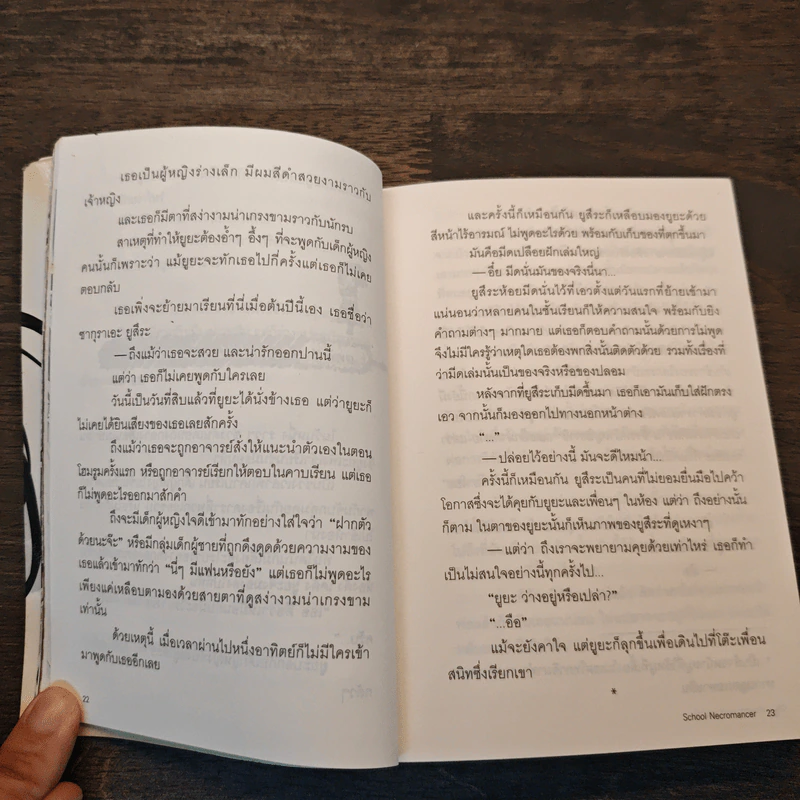 เธอเป็นผู้หญิงร่างเล็ก มีผมสีดำสวยงามราวกับ
เจ้าหญิง
และเธอก็มีตาที่สง่างามน่าเกรงขามราวกับนักรบ
สาเหตุที่ทำให้ยูยะต้องอ้ำๆ อึ้งๆ ที่จะพูดกับเด็กผู้หญิง
คนนั้นก็เพราะว่า แม้ยูยะจะทักเธอไปกี่ครั้งแต่เธอก็ไม่เคย
ตอบกลับ
เธอเพิ่งจะย้ายมาเรียนที่นี่เมื่อต้นปีนี้เอง เธอชื่อว่า
ซากุราเอะ ยูสีระ
—ถึงแม้ว่าเธอจะสวย และน่ารักออกปานนี้
แต่ว่า เธอก็ไม่เคยพูดกับใครเลย
วันนี้เป็นวันที่สิบแล้วที่ยูยะได้นั่งข้างเธอ แต่ว่ายูยะก็
ไม่เคยได้ยินเสียงของเธอเลยสักครั้ง
ถึงแม้ว่าเธอจะถูกอาจารย์สั่งให้แนะนำตัวเองในตอน
โฮมรูมครั้งแรก หรือถูกอาจารย์เรียกให้ตอบในคาบเรียน แต่เธอ
ก็ไม่พูดอะไรออกมาสักคำ
ถึงจะมีเด็กผู้หญิงใจดีเข้ามาทักอย่างใส่ใจว่า “ฝากตัว
ด้วยนะจ๊ะ” หรือมีกลุ่มเด็กผู้ชายที่ถูกดึงดูดด้วยความงามของ
เธอแล้วเข้ามาทักว่า “นี่ๆ มีแฟนหรือยัง” แต่เธอก็ไม่พูดอะไร
เพียงแค่เหลือบตามองด้วยสายตาที่ดูสง่างามน่าเกรงขาม
เท่านั้น
ด้วยเหตุนี้ เมื่อเวลาผ่านไปหนึ่งอาทิตย์ก็ไม่มีใครเข้า
มาพูดกับเธออีกเลย
22
และครั้งนี้ก็เหมือนกัน ยูสีระก็เหลือบมองยูยะด้วย
สีหน้าไร้อารมณ์ ไม่พูดอะไรด้วย พร้อมกับเก็บของที่ตกขึ้นมา
มันคือมีดเปลือยฝักเล่มใหญ่
—อึ๋ย มีดนั่นมันของจริงนี่นา...
ยูสีระห้อยมีดนั่นไว้ที่เอวตั้งแต่วันแรกที่ย้ายเข้ามา
แน่นอนว่าหลายคนในชั้นเรียนก็ให้ความสนใจ พร้อมกับยิง
คำถามต่างๆ มากมาย แต่เธอก็ตอบคำถามนั้นด้วยการไม่พูด
จึงไม่มีใครรู้ว่าเหตุใดเธอต้องพกสิ่งนั้นติดตัวด้วย รวมทั้งเรื่องที่
ว่ามีดเล่มนั้นเป็นของจริงหรือของปลอม
หลังจากที่ยูสีระเก็บมีดขึ้นมา เธอก็เอามันเก็บใส่ฝักตรง
เอว จากนั้นก็มองออกไปทางนอกหน้าต่าง
“...”
—ปล่อยไว้อย่างนี้ มันจะดีไหมน้า...
ครั้งนี้ก็เหมือนกัน ยูสีระเป็นคนที่ไม่ยอมยื่นมือไปคว้า
โอกาสซึ่งจะได้คุยกับยูยะและเพื่อนๆ ในห้อง แต่ว่า ถึงอย่างนั้น
ก็ตาม ในตาของยูยะนั้นก็เห็นภาพของยูสีระที่ดูเหงาๆ
—แต่ว่า ถึงเราจะพยายามคุยด้วยเท่าไหร่ เธอก็ทำ
เป็นไม่สนใจอย่างนี้ทุกครั้งไป...
“ยูยะ ว่างอยู่หรือเปล่า?”
“...อือ”
แม้จะยังคาใจ แต่ยูยะก็ลุกขึ้นเพื่อเดินไปที่โต๊ะเพื่อน
สนิทซึ่งเรียกเขา
*
School Necromancer 23